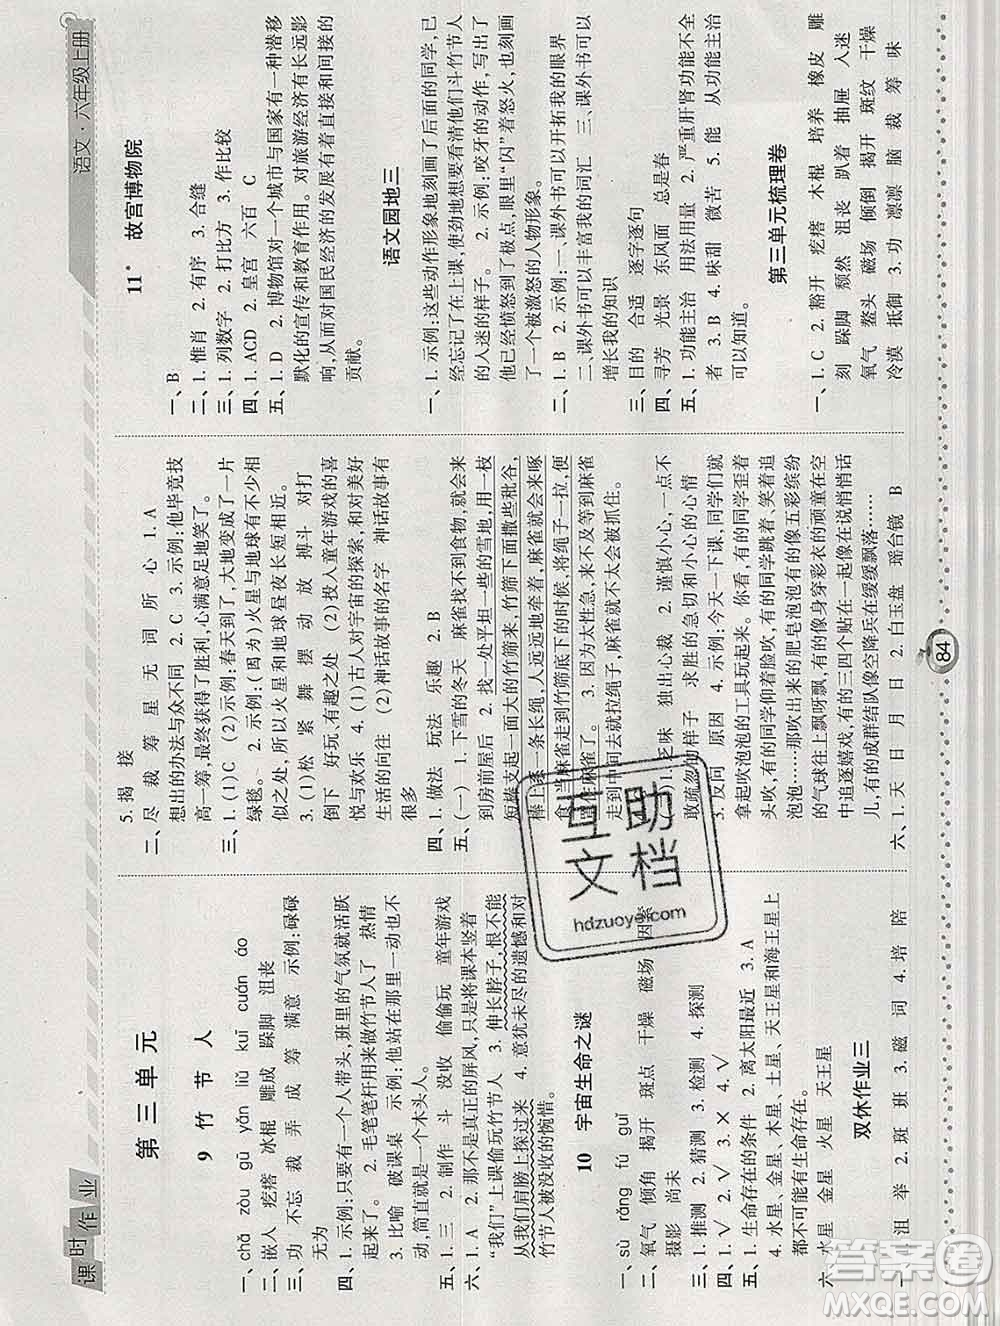 课时作业
语文·六年级上册
第三单元
9 竹节人
一、chā zòu gū yǎn liǔ kuī cuán áo
二、嵌人 疙瘩 冰棍 雕成 跺脚 沮丧
三、功 不忘 裁 弄 成 筹 满意 示例:碌碌
无为
四、1. 示例:只要有一个人带头,班里的气氛就活跃
起来了。2. 毛笔笔杆用来做竹节人了 热情
3. 比喻 破课桌 示例:他站在那里一动也不
动,简直就是一个木头人。
五、1. 三 2. 制作 斗 没收 偷偷玩 童年游戏
六、1. A 2. 那不是真正的屏风,只是将课本竖着
“我们”上课偷玩竹节人 3. 伸长脖子,恨不能
从我们肩膀上探过来 4. 意犹未尽的遗憾和对
竹节人被没收的惋惜。
10 宇宙生命之谜
一、sù rǎng fú guǐ
二、氧气 倾角 揭开 斑点 干燥 磁场 因素
摄影 尚未
三、1. 推测 2. 猜测 3. 检测 4. 探测
四、1. √ 2. √ 3. × 4. √
五、1. 生命存在的条件 2. 离太阳最近 3. A
4. 水星、金星、木星、土星、天王星和海王星上
都不可能有生命存在。
六、水星 金星 火星 天王星
双休作业三
一、1. 沮 举 2. 班 斑 3. 磁 词 4. 培 陪
5. 揭 接
二、尽 裁 筹 星 无 词 所 心 1. A
想出的办法与众不同 2. C 3. 示例:他毕竟技
高一筹,最终获得了胜利,心满意足地笑了。
三、1. (1)C (2)示例:春天到了,大地变成了一片
绿毯。2. 示例:(因为)火星与地球有不少相
似之处,所以火星和地球昼夜长短相近。
3. (1)松 紧 舞 摆 动 放 搏斗 对打
倒下 好玩、有趣之处 (2)投入童年游戏的喜
悦与欢乐 4. (1)古人对宇宙的探索,和对美好
生活的向往 (2)神话故事的名字 神话故事有
很多
四、1. 做法 玩法 乐趣 2. B
五、(一)1. 下雪的冬天 麻雀找不到食物,就会来
到房前屋后 2. 找一处平坦一些的雪地,用一枝
短棒支起一面大的竹筛来,竹筛下面撒些秕谷,
棒上系一条长绳,人远远地牵着,麻雀就会来啄
食,当麻雀走到竹筛底下的时候,将绳子一拉,便
麻雀了。3. 因为太性急,来不及等到麻雀
走到中间去就拉绳子,麻雀没有被抓住。
(二)1. 乏味 独出心裁 2. 谨慎小心,一点不
敢疏忽的样子 求胜的急切和小心的心情
3. 反问 原因 4. 示例:今天一下课,同学们就
拿起吹泡泡的工具玩起来。你看,有的同学歪着
头吹,有的同学仰着脸吹,有的同学跳着、笑着追
泡泡……那吹出来的肥皂泡泡有的像五彩缤纷
的气球往上飘呀飘,有的像身穿彩衣的顽童在空
中追逐嬉戏,有的三四个贴在一起像在说悄悄话
儿,有的成群结队像空降兵在缓缓飘落……
六、1. 天 日 月 日 2. 白玉盘 瑶台镜 B
11* 故宫博物院
一、B
二、1. 惟肖 2. 有序 3. 合缝
三、1. 列数字 2. 打比方 3. 作比较
四、1. ACD 2. 皇宫 六百 C
五、1. D 2. 博物馆对一个城市与国家有一种潜移
默化的宣传和教育作用。对旅游经济有长远影
响,从而对国民经济的发展有着直接和间接的
贡献。
语文园地三
一、1. 示例:这些动作形象地刻画了后面的同学,已
经忘记了在上课,使劲地想要看清他们斗竹节人
的人迷的样子。2. 示例:咬牙的动作,写出了
他已经愤怒到了极点,眼里“闪”着怒火,也刻画
了一个被激怒的人物形象。
二、1. B 2. 示例:一、课外书可以开拓我的眼界
二、课外书可以丰富我的词汇 三、课外书可以
增长我的知识
三、目的 合适 逐字逐句
四、寻芳 光景 东风面 总是春
五、1. 功能主治 用法用量 2. 严重肝肾功能不全
者 3. B 4. 味甜 微苦 5. 能 从功能主治
可以知道。
第三单元梳理卷
一、1. C 2. 豁开 疙瘩 木棍 培养 橡皮 雕
刻 跺脚 颓然 沮丧 趴着 抽屉 人迷
氧气 鳌头 磁场 倾倒 揭开 斑纹 干燥
冷漠 抵御 3. 功 凛凛 脑 裁 筹 味
84
互助文档
hdzuoye.com
答案圈
MXQE.COM